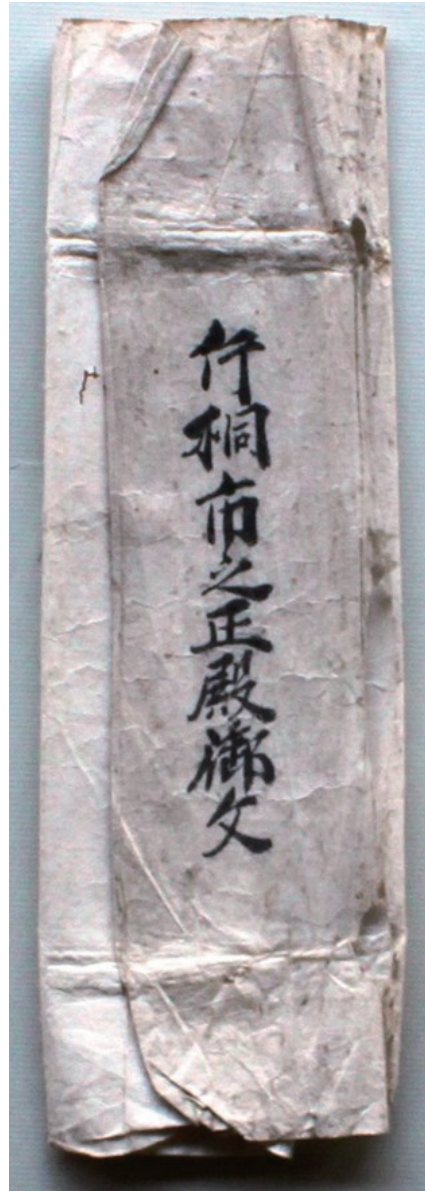 片桐市之正殿御文